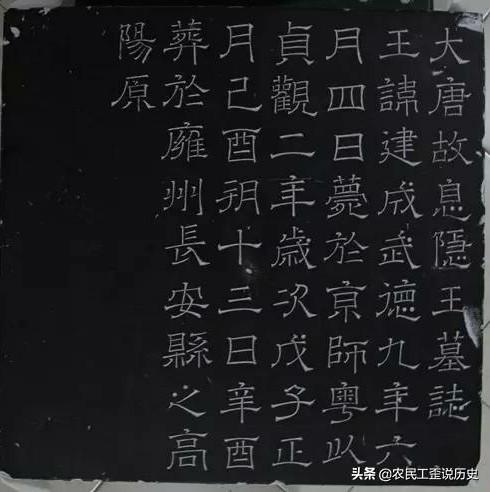 大唐故息隱王墓誌
王諱建成武德九年六
月四日薨於京師粵以
貞觀二年歲次戊子正
月己酉朔十三日辛酉
葬於雍州長安縣之高
陽原
头条 @农民工歪说历史